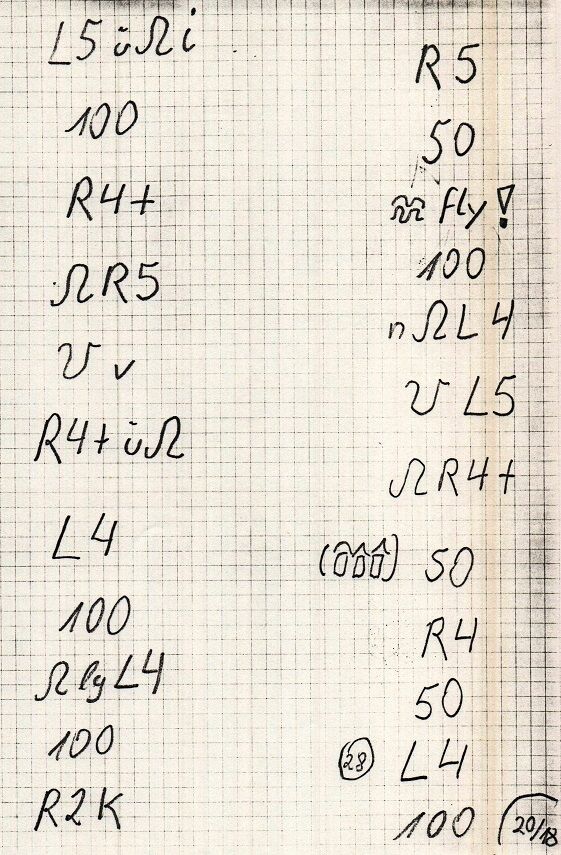 L5 ü Ω i
100
R4+
ΩR5
V v
R4+ ü Ω
L4
100
Ω lg L4
100
R2K
R5
50
Fly!
100
n Ω L4
V L5
Ω R4+
50
R4
50
28 L4
100 20/18